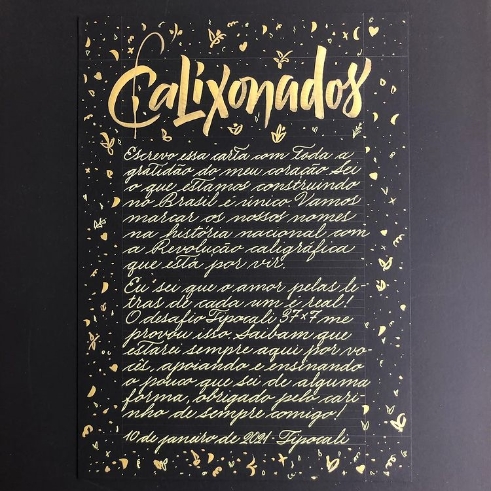 Calixonados
Escrevo essa carta com toda a
gratidão do meu coração. Sei
o que estamos construindo
no Brasil é único. Vamos
marcar os nossos nomes
na história nacional com
a Revolução caligráfica
que está por vir.
Eu sei que o amor pelas le
tras de cada um é real!
O desafio Tipocali 37x7 me
provou isso. Saibam que
estarei sempre aqui por vo
cês, apoiando e ensinando
o pouco que sei de alguma
forma, obrigado pelo cari
nho de sempre comigo!
10 de janeiro de 2021 - Tipocali